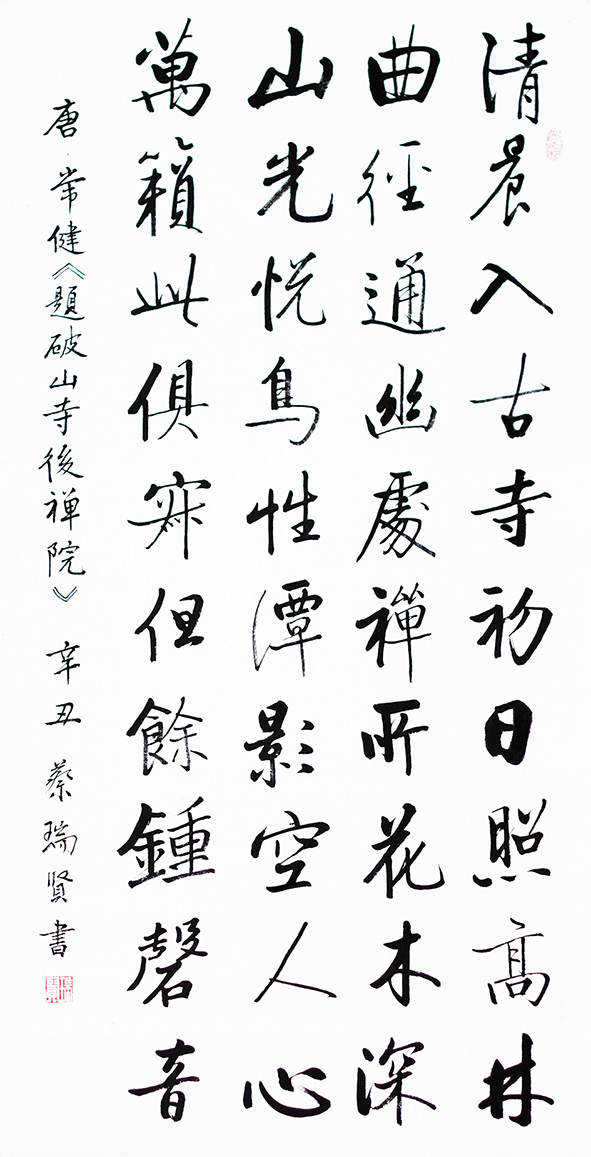 清晨入古寺初日照高林
曲徑通幽處禪所花木深
山光悦鳥性潭影空人心
萬籟此俱寂但餘鍾磬音
唐·常健《題破山寺後禅院》 辛丑 蔡瑞賢書